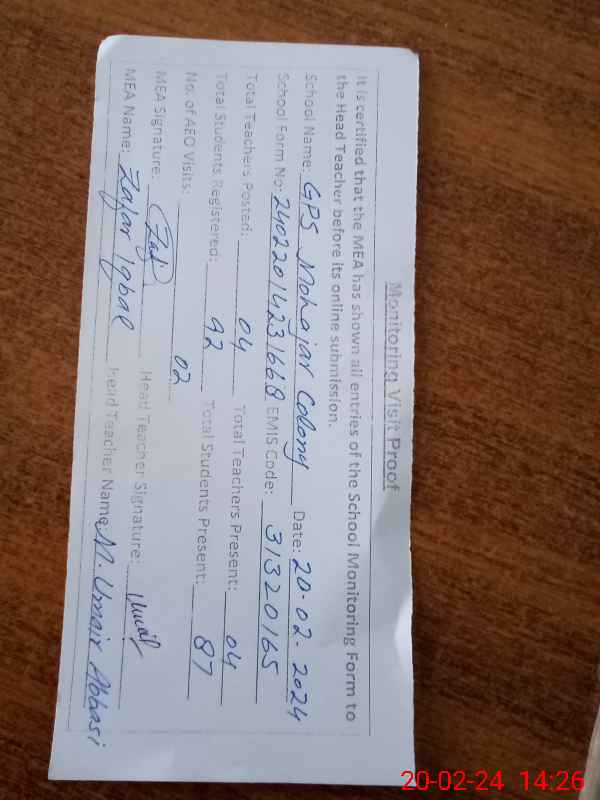 Monitoring Visit Proof
It is certified that the MEA has shown all entries of the School Monitoring Form to
the Head Teacher before its online submission.
School Name: GPS Mohajar Colony Date: 20-02-2024
School Form No: 24022014231668 EMIS Code: 31320165
Total Teachers Posted: 04 Total Teachers Present: 04
Total Students Registered: 92 Total Students Present: 87
No. of AEO Visits: 02
MEA Signature: Head Teacher Signature: Umair
MEA Name: Zafar Iqbal Head Teacher Name: M. Umair Abbasi
20-02-24 14:26